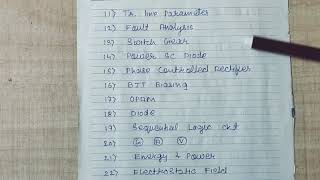 11) Tr. line Parameter
12) Fault Analysis
13) Switch Gear
14) Power SC Diode
15) Phase Controlled Rectifier
16) BJT Biasing
17) OPAM
18) Diode
19) Sequential Logic ckt
20)
21) Energy & Power
22) Electrostatic Field